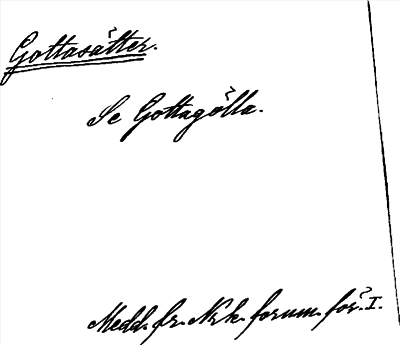 Gottasätter.
Se Gottagölla.
Medd. fr. Nrk. fornm. för. I.